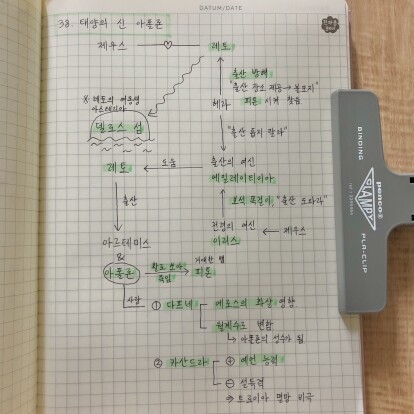 DATUM/DATE
38. 태양의 신 아폴론
제우스 레토
출산 방해
"출산 장소 제공 → 불모지"
피톤 시켜 쫓음
※ 레토의 여동생
아스테리아
델로스 섬
헤라
"출산 돕지 말라"
레토 도움 출산의 여신
에일레이티이아
출산
보석 목걸이, "출산 도와라"
전령의 여신
이리스 제우스
아르테미스
&
아폴론 활로 쏘아 죽임 거대한 뱀
피톤
사랑 ① 다프네 에로스의 화살 영향
월계수로 변함
→ 아폴론의 성수가 됨
② 카산드라 ⊕ 예언 능력
⊖ 설득력
⇒ 트로이아 멸망 비극
BINDING
penco®
CLAMPY
PLA-CLIP